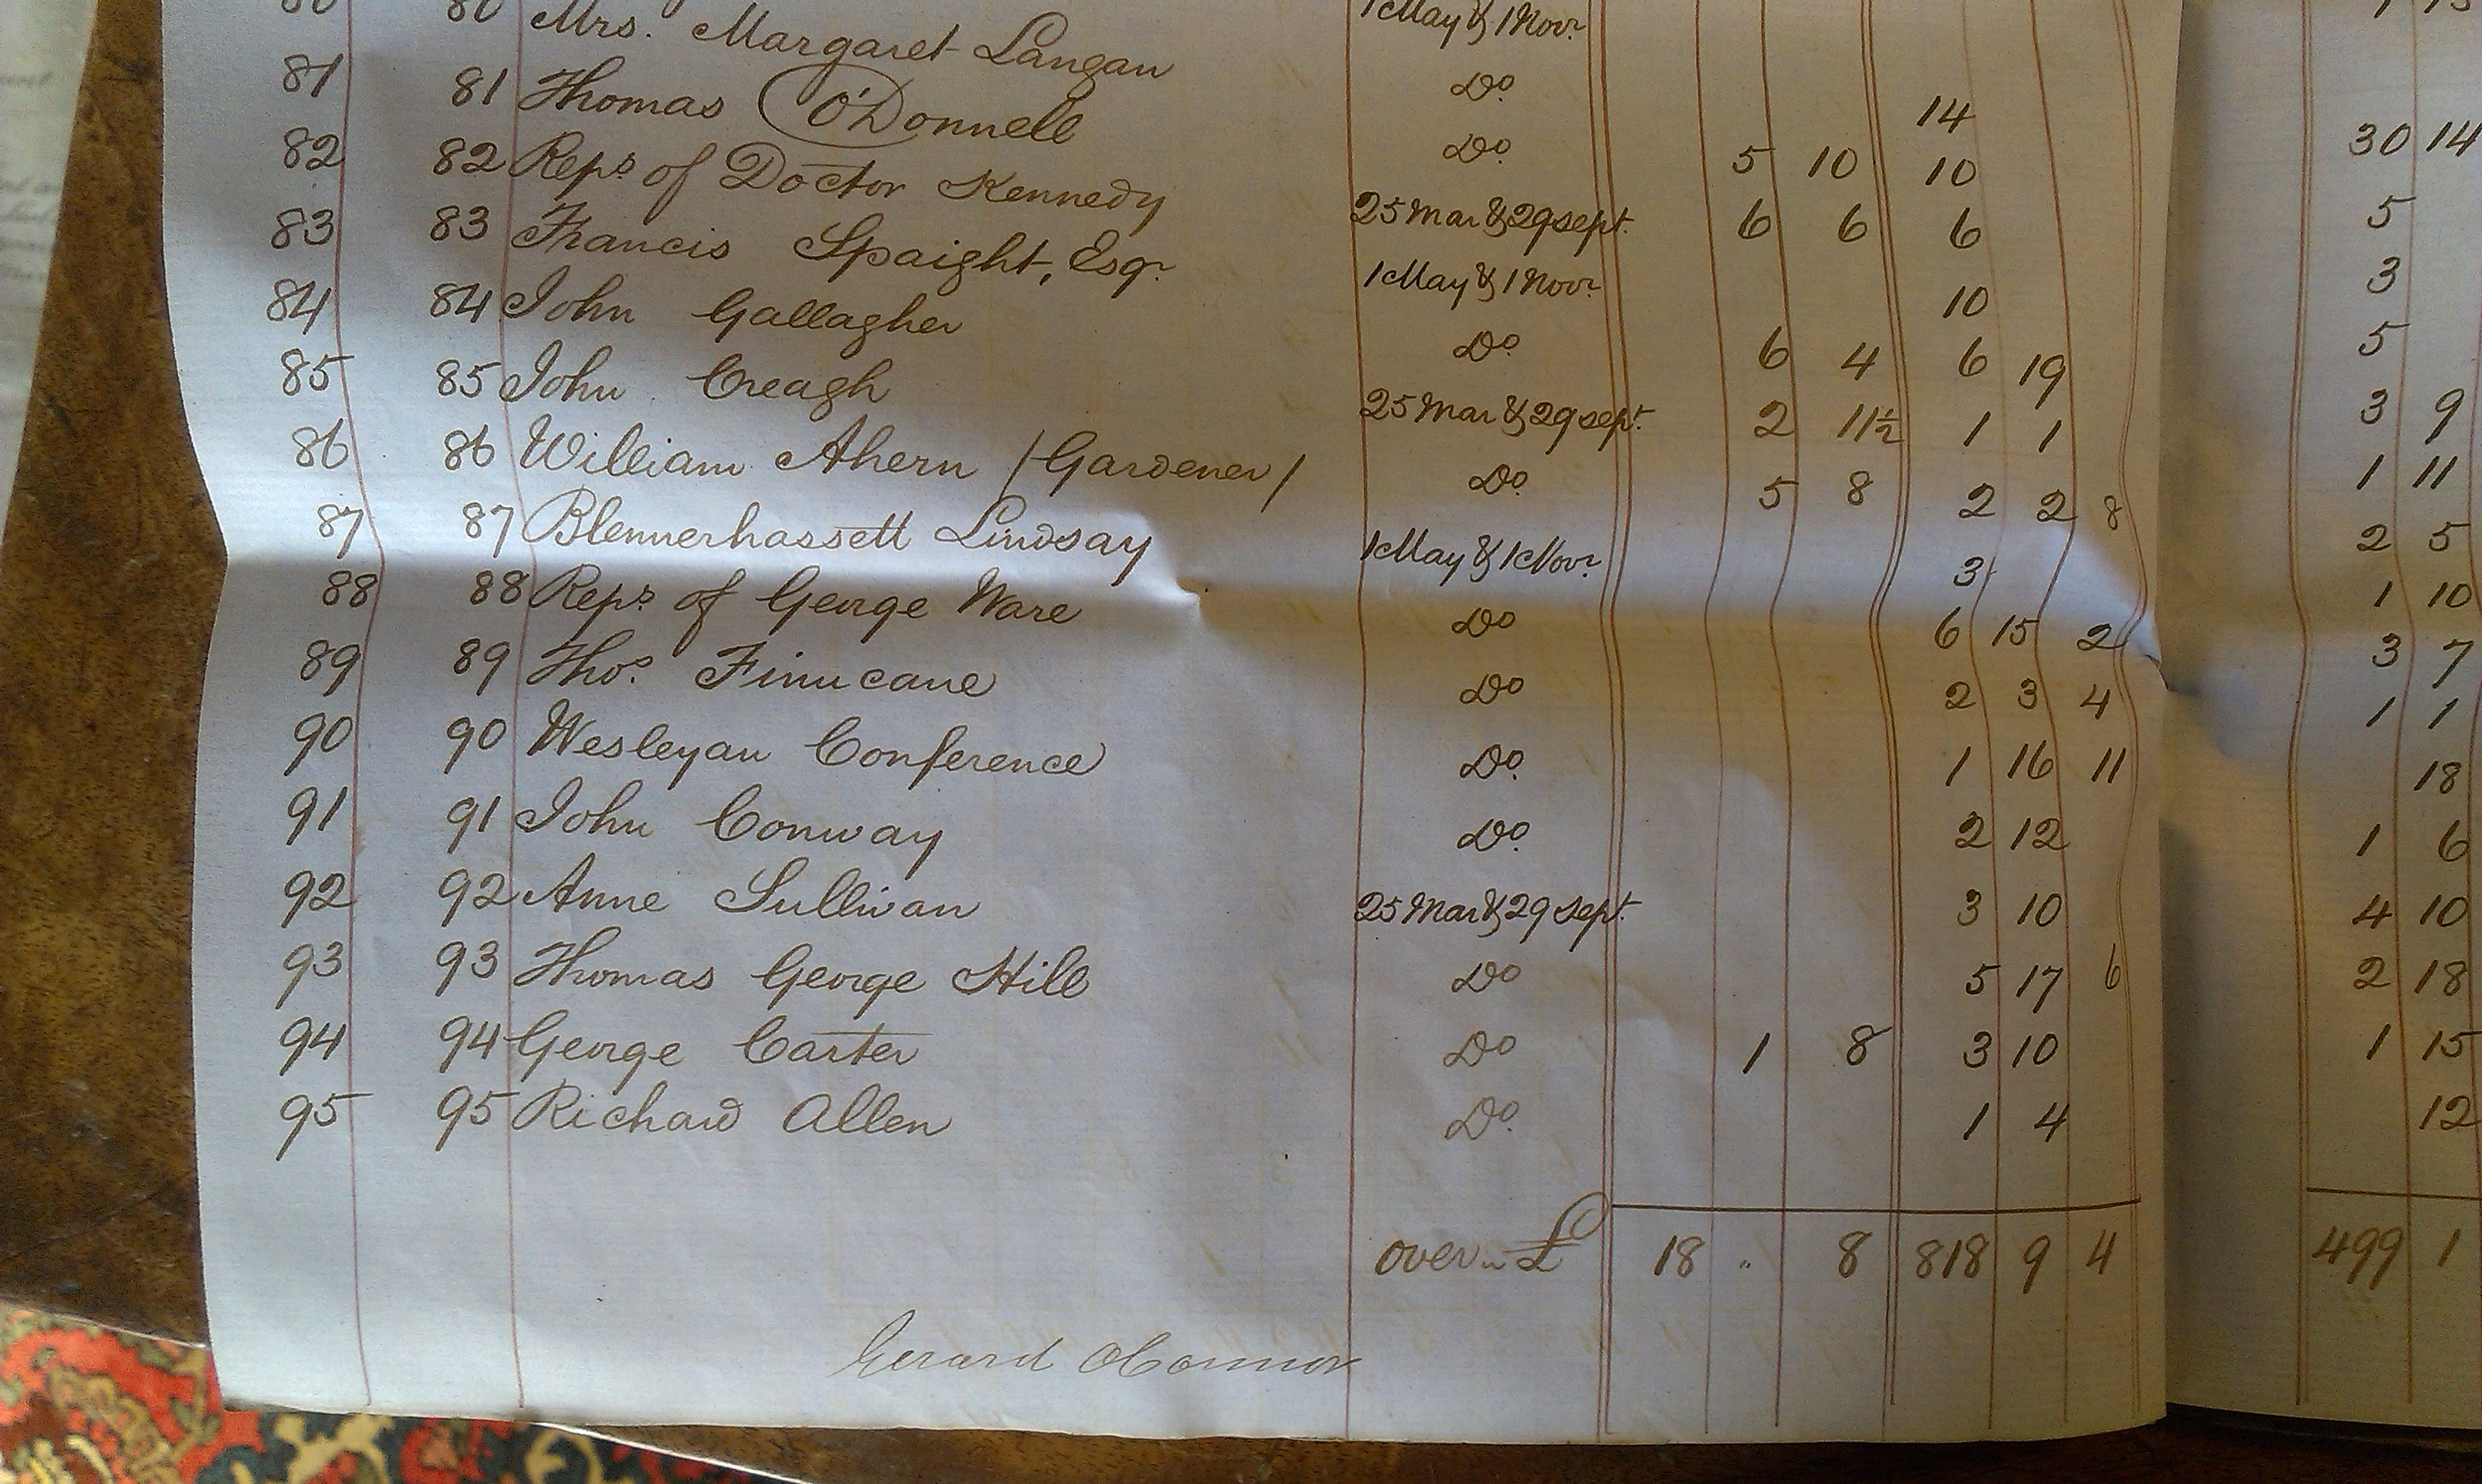 1 May & 1 Novr.
80 80 Mrs. Margaret Langan Do. 14 30 14
81 81 Thomas O'Donnell Do. 5 10 10 5
82 82 Reps. of Doctor Kennedy 25 Mar & 29 Sept. 6 6 6 3
83 83 Francis Spaight, Esqr. 1 May & 1 Novr. 10 5
84 84 John Gallagher Do. 6 4 6 19 3 9
85 85 John Creagh 25 Mar & 29 Sept. 2 11½ 1 1 1 11
86 86 William Ahern / Gardener / Do. 5 8 2 2 8 2 5
87 87 Blennerhassett Lindsay 1 May & 1 Novr. 3 1 10
88 88 Reps. of George Ware Do 6 15 2 3 7
89 89 Thos. Finucane Do 2 3 4 1 1
90 90 Wesleyan Conference Do. 1 16 11 18
91 91 John Conway Do. 2 12 1 6
92 92 Anne Sullivan 25 Mar & 29 Sept. 3 10 4 10
93 93 Thomas George Hill Do 5 17 6 2 18
94 94 George Carter Do 1 8 3 10 1 15
95 95 Richard Allen Do. 1 4 12
over £ 18 " 8 818 9 4 499 1
Gerard OConnor